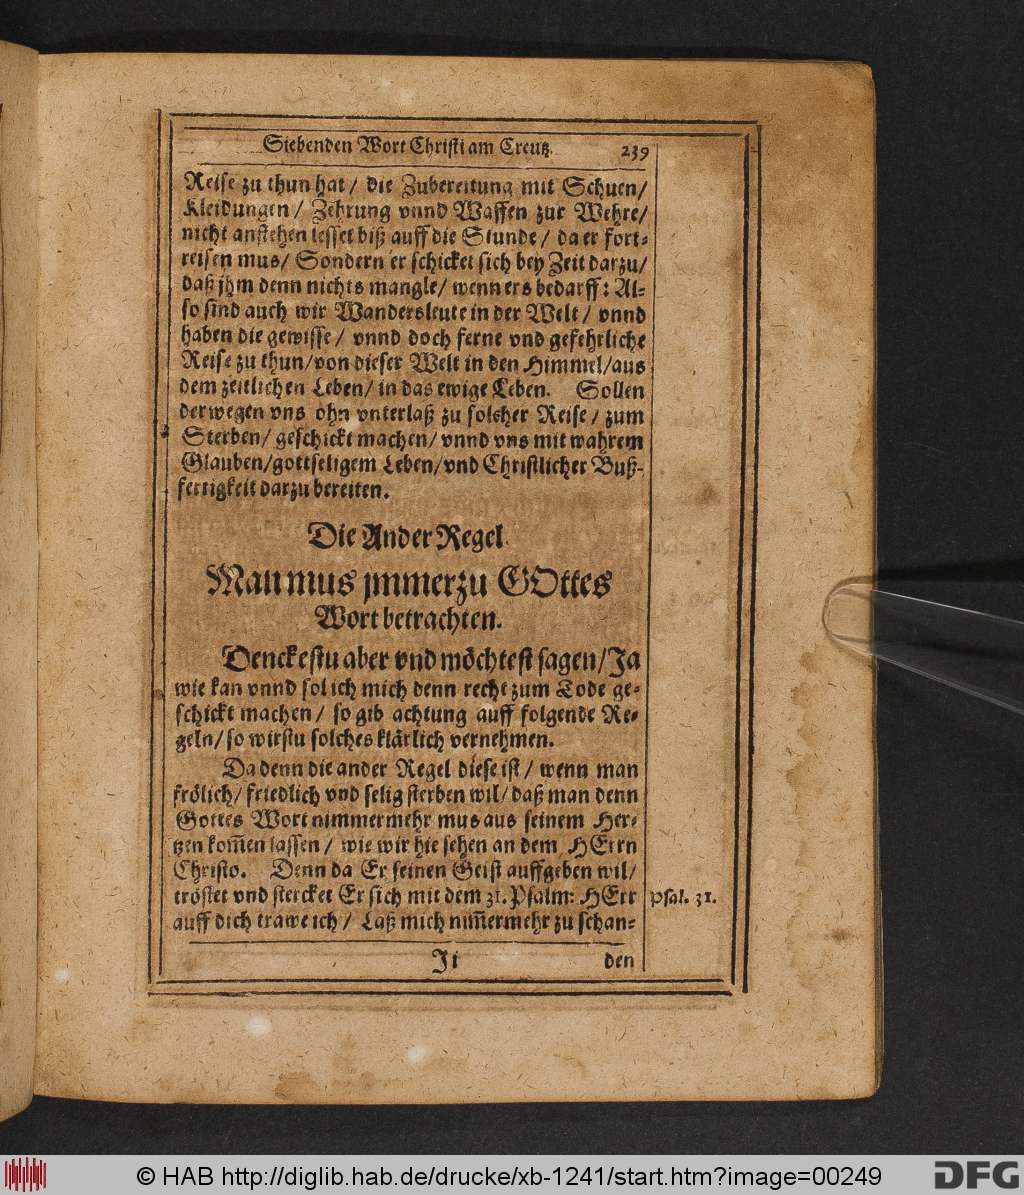 Siebenden Wort Christi am Creutz. 239
Reise zu thun hat / die Zubereitung mit Schuen/
Kleidungen / Zehrung vnnd Waffen zur Wehre/
nicht anstehen lesset biß auff die Stunde / da er fort-
reisen mus/ Sondern er schicket sich bey Zeit darzu/
daß jhm denn nichts mangle/ wenn ers bedarff: Al-
so sind auch wir Wandersleute in der Welt / vnnd
haben die gewisse / vnnd doch ferne vnd gefehrliche
Reise zu thun/von dieser Welt in den Himmel/aus
dem zeitlichen Leben/ in das ewige Leben. Sollen
derwegen vns ohn vnterlaß zu solcher Reise / zum
Sterben/ geschickt machen/ vnnd vns mit wahrem
Glauben/gottseligem Leben/vnd Christlicher Buß-
fertigkeit darzu bereiten.
Die Ander Regel.
Man mus jmmerzu GOttes
Wort betrachten.
Denckestu aber vnd möchtest sagen/Ja
wie kan vnnd sol ich mich denn recht zum Tode ge-
schickt machen / so gib achtung auff folgende Re-
geln/ so wirstu solches klärlich vernehmen.
Da denn die ander Regel diese ist / wenn man
frölich/ friedlich vnd selig sterben wil/ daß man denn
Gottes Wort nimmermehr mus aus seinem Her-
tzen kom̃en lassen / wie wir hie sehen an dem HErrn
Christo. Denn da Er seinen Geist auffgeben wil/
tröstet vnd stercket Er sich mit dem 31. Psalm: HErr
Psal. 31.
auff dich trawe ich / Laß mich nim̃ermehr zu schan-
Ji den
© HAB http://diglib.hab.de/drucke/xb-1241/start.htm?image=00249
DFG